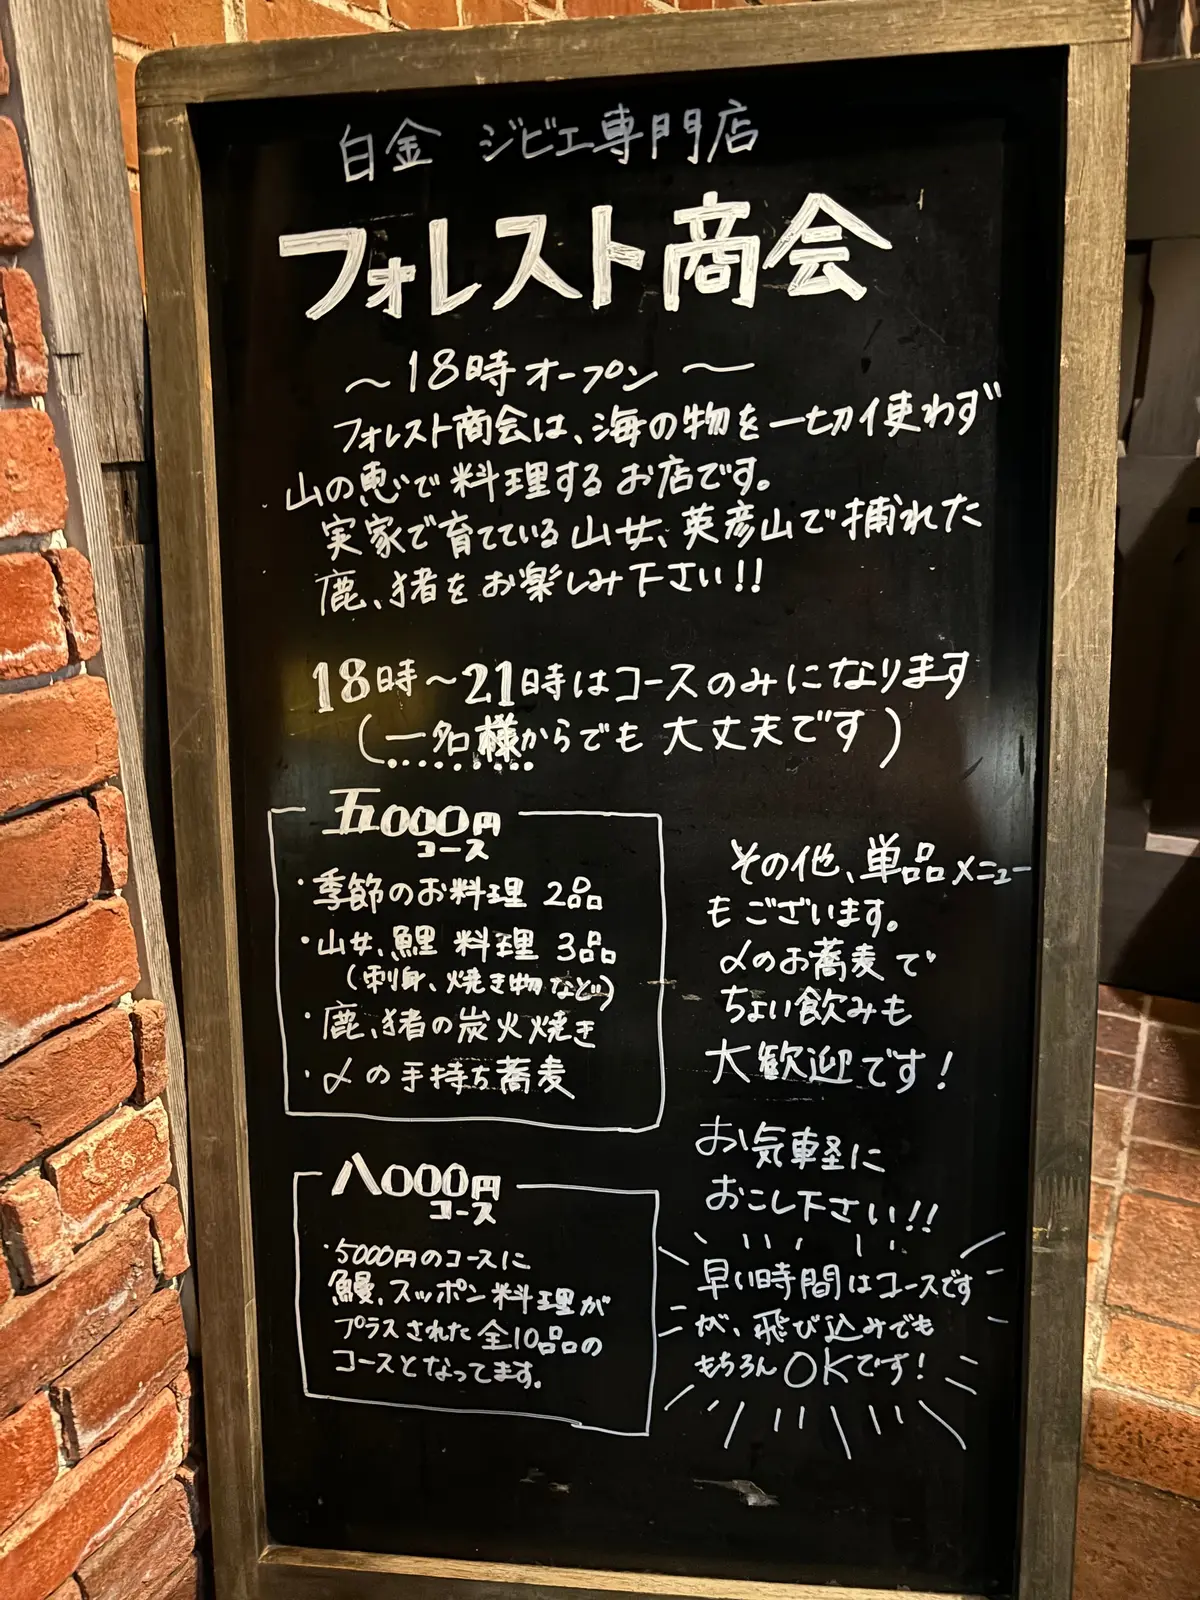 白金 ジビエ専門店
フォレスト商会
～18時オープン～
フォレスト商会は、海の物を一切使わず
山の恵で料理するお店です。
実家で育てている山女、英彦山で捕れた
鹿、猪をお楽しみ下さい!!
18時～21時はコースのみになります
(一名様からでも大丈夫です)
五000円
コース
・季節のお料理 2品
・山女、鯉 料理 3品
(刺身、焼き物など)
・鹿、猪の炭火焼き
・〆の手持ち蕎麦
八000円
コース
・5000円のコースに
鰻、スッポン料理が
プラスされた全10品の
コースとなってます。
その他、単品メニュー
もございます。
〆のお蕎麦で
ちょい飲みも
大歓迎です!
お気軽に
おこし下さい!!
早い時間はコースです
が、飛び込みでも
もちろんOKです!